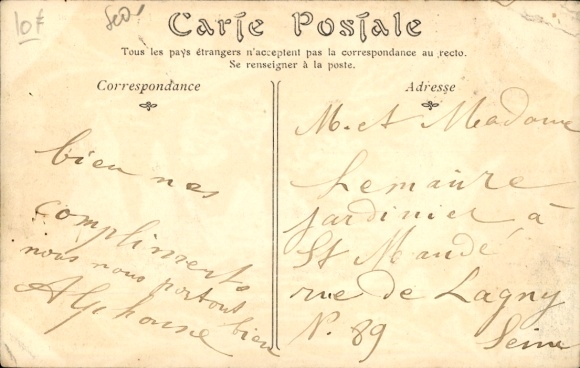 10 F
Carte Postale
Tous les pays étrangers n'acceptent pas la correspondance au recto.
Se renseigner à la poste.
Correspondance
bien nos
compliments
nous nous portont bien
Alphonse
Adresse
M. et Madame
Lemaire
jardinier à
St Mandé
rue de Lagny
N. 89 Seine